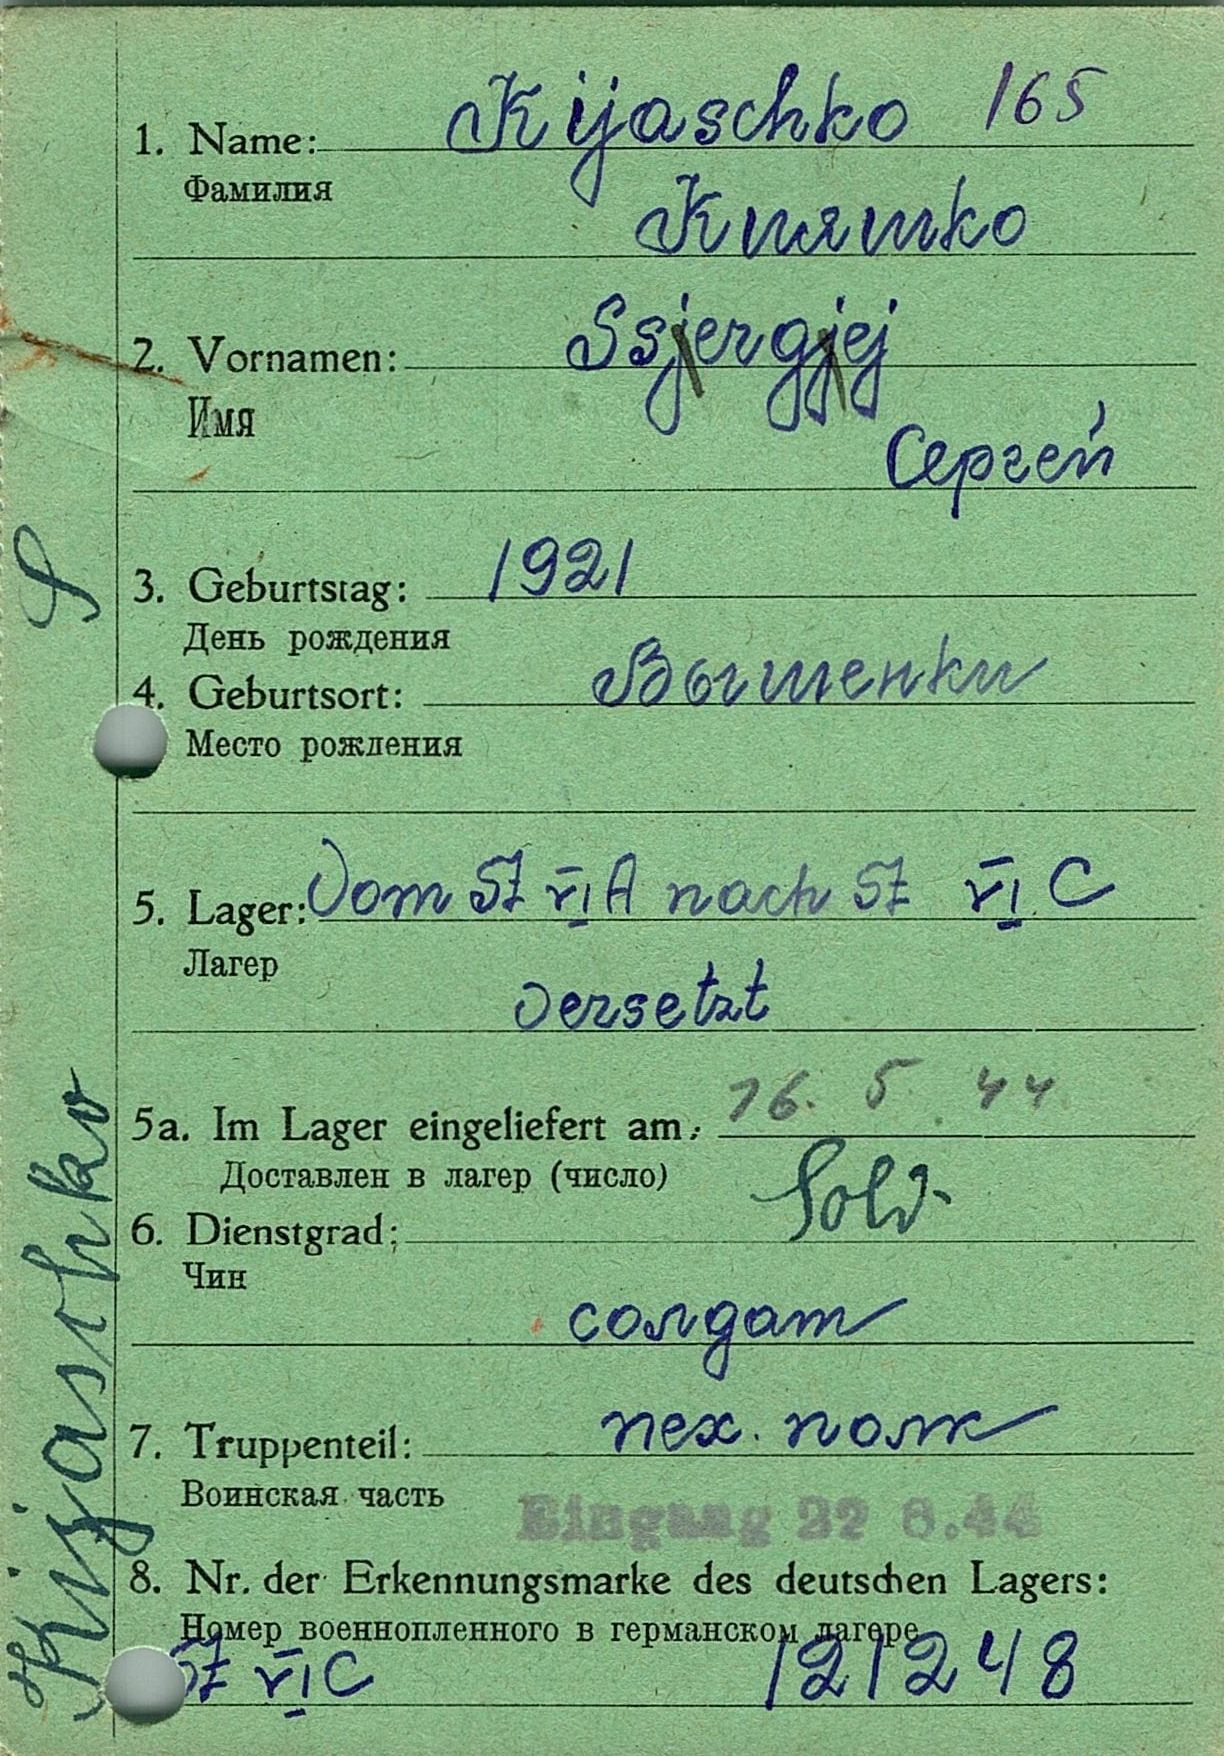 Kijaschko 165
1. Name:
Фамилия
Кияшко
2. Vornamen: Ssjergjej
Имя
Сергей
3. Geburtstag: 1921
День рождения
4. Geburtsort: Вышенки
Место рождения
5. Lager: Vom St VI A nach St VI C
Лагер
versetzt
5a. Im Lager eingeliefert am: 16. 5. 44
Доставлен в лагер (число)
6. Dienstgrad: Sold.
Чин
солдат
7. Truppenteil: пех. полк
Воинская часть
Eingang 22 6.44
8. Nr. der Erkennungsmarke des deutschen Lagers:
Номер военнопленного в германском лагере
St VI C 121248
Kijaschko S